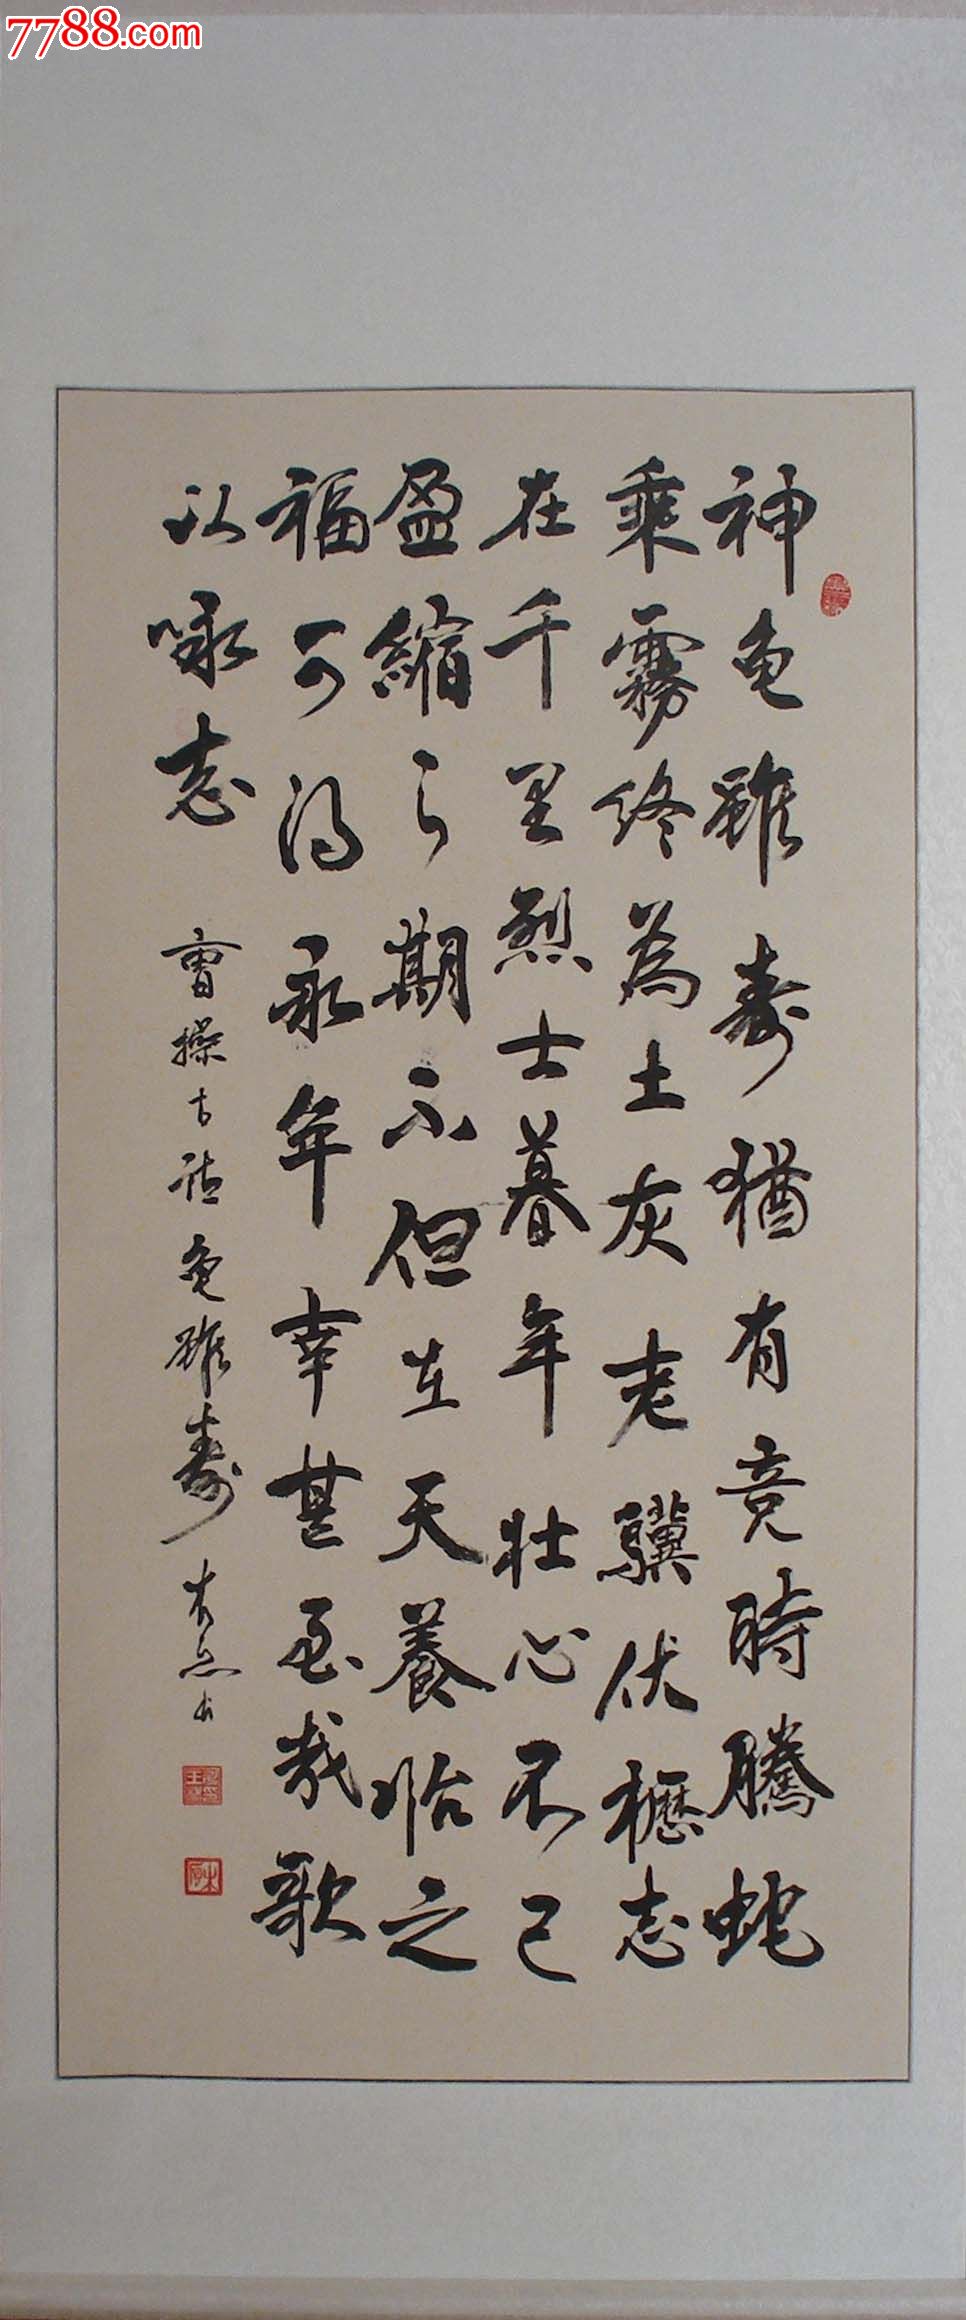 7788.com
神龟雖壽猶有竞時騰蛇
乘霧终為土灰老驥伏櫪志
在千里烈士暮年壮心不已
盈縮之期不但在天養怡之
福可得永年幸甚至哉歌
以咏志
曹操古诗龟雖壽